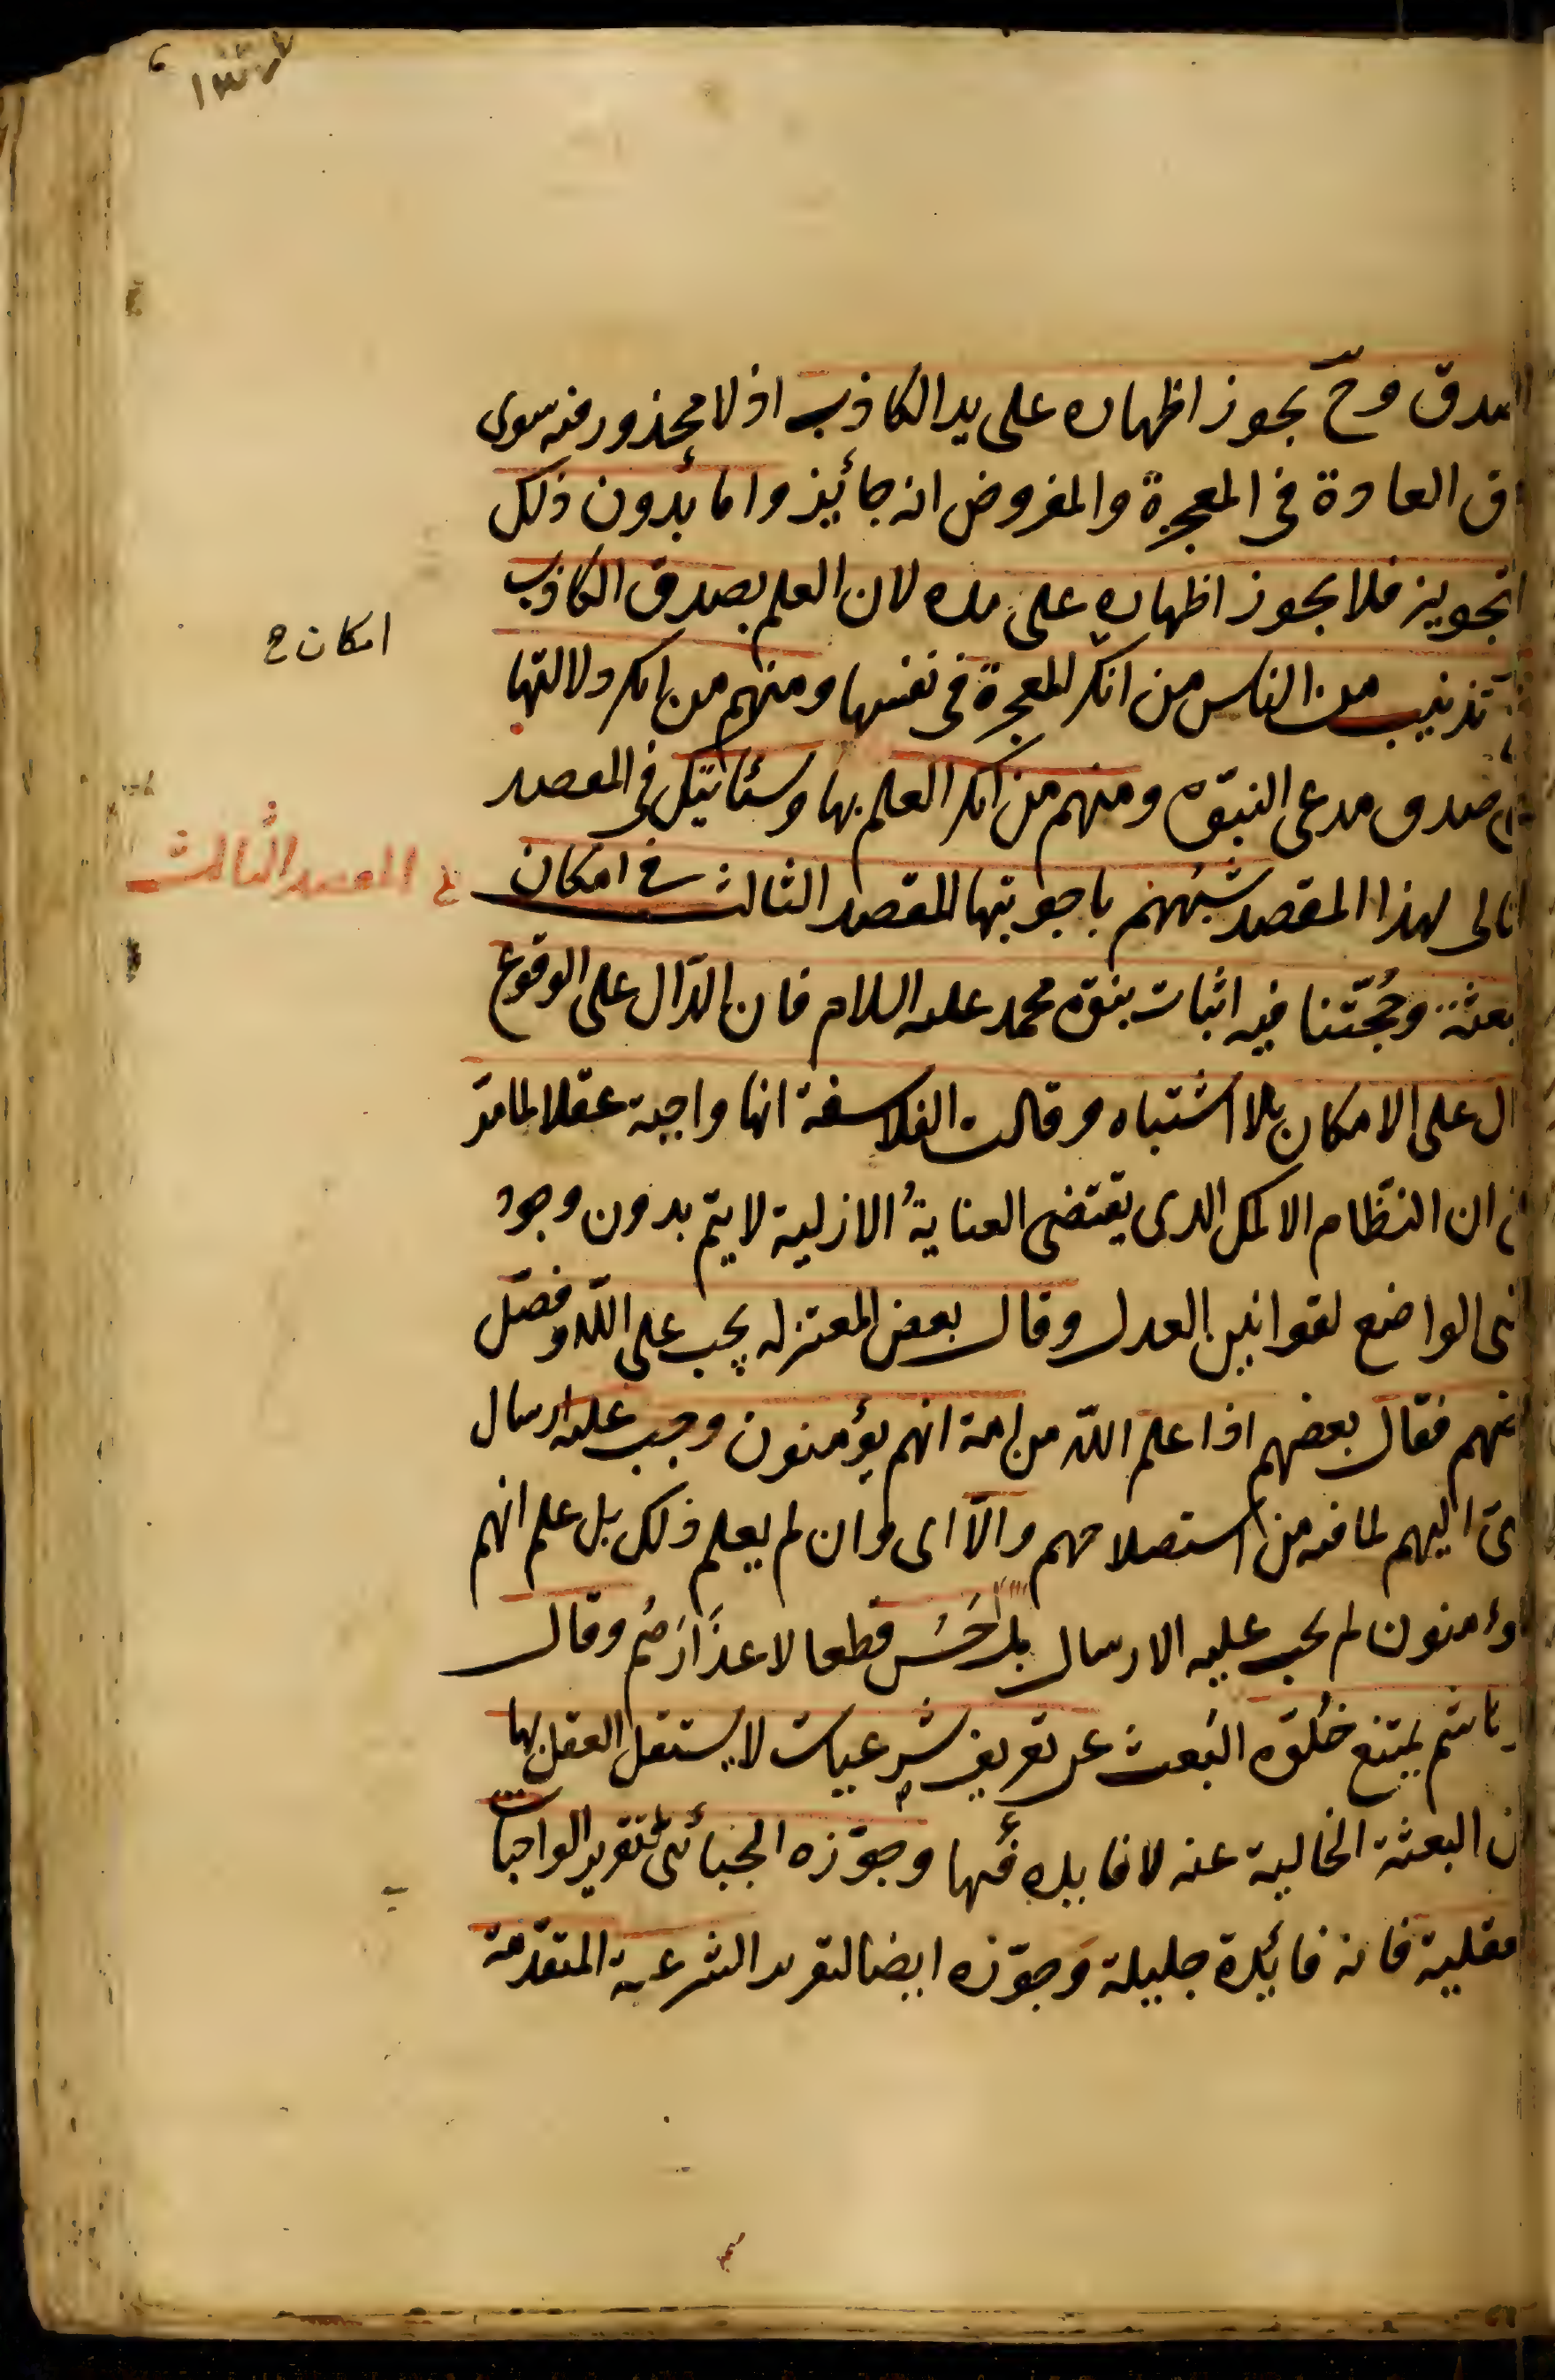 الصدق وح يجوز اظهاره على يد الكاذب اذ لا محذور فيه سوى
ق العادة في المعجزة والمفروض انه جائيز واما بدون ذلك
التجويز فلا يجوز اظهاره على يده لان العلم بصدق الكاذب
امكان ح
تذنيب من الناس من انكر المعجزة في نفسها ومنهم من انكر دلالتها
صدق مدعى النبوّة ومنهم من انكر العلم بها وستأتيك في المقصد
التالى لهذا المقصد شبههم باجوبتها المقصد الثالث في امكان
المقصد الثالث
بعثة وحُجّتنا فيه اثبات نبوّة محمد عليه السلام فان الدّال على الوقوع
ال على الامكان بلا اشتباه وقالت الفلاسفة انها واجبة عقلا لما مرّ
ان النظّام الاكمل الذى يقتضى العنايةُ الازلية لا يتم بدون وجود
النبى الواضع لقوانين العدل وقال بعض المعتزله يجب على اللّه وفصّل
بعضهم فقال بعضهم اذا علم اللّه من امة انهم يؤمنون وجب عليه ارسال
اليهم لما فيه من استصلاحهم والّا اى وان لم يعلم ذلك بل علم انهم
لا يؤمنون لم يجب عليه الارسال بل حَسُن قطعا لاعذارهم وقال
هاشم يمتنع خُلوّه البعث عن تعريف شرعيات لا يستقل العقل بها
ن البعثة الخالية عنه لا فايده فيها وجوّزه الجبائى لتقرير الواجبات
العقلية فانه فائيدة جليلة وجوّزه ايضا لتقرير الشرعية المتقدّمة